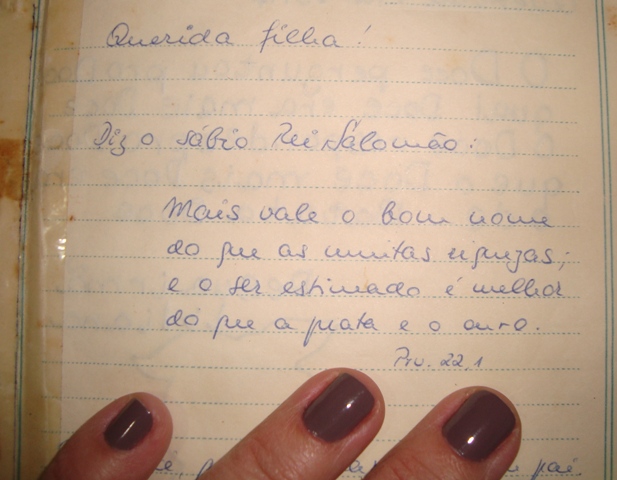 Querida filha!
Diz o sábio Rei Salomão:
Mais vale o bom nome
do que as muitas riquezas;
e o ser estimado é melhor
do que a prata e o ouro.
Prov. 22,1
pai.